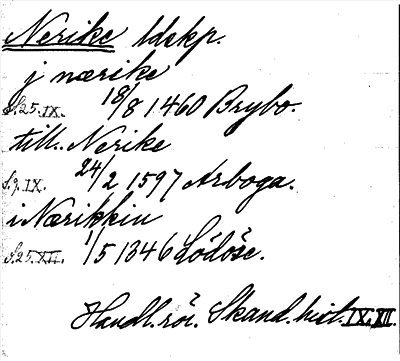 Nerike ldskp.
j nærike
S. 25. IX. 18/8 1460 Brybo.
till. Nerike
S. 9. IX. 24/2 1597 Arboga.
i Nærikkin
S. 25. XII. 1/5 1346 Lödöse.
Handl. rör. Skand. hist. IX. XII.